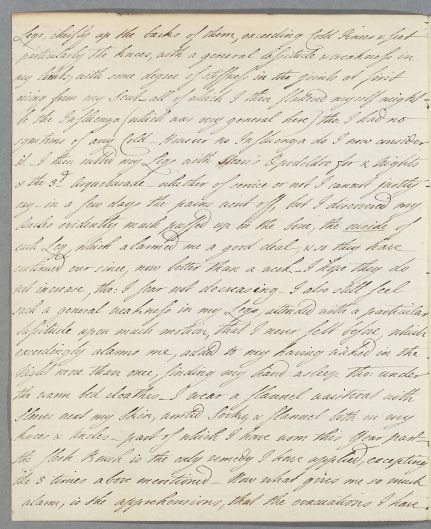 Legs, chiefly up the backs of them, exceeding Cold Knees & feet
particularly the knees, with a general lassitude & weakness in
my limbs, with some degree of stiffness in the joints at first
rising from my Seat – all of which I then flattered myself might
be the Influenza (which was very general here) tho I had no
symtoms of any Cold – However no Influenza do I now consider
it. I then rubed my Legs with Steer's Opodeldoc for 2 Nights
& the 3d. Arquebusade – whether of service or not I cannot justly
say – in a few days the pains went off, but I discovered my
Ancles evidently much puffed up in the bone, the outside of
each Leg, which alarmed me a good deal & so they have
continued ever since, now better than a week – I hope they do
not increase, tho: I fear not decreasing – I also still feel
such a general weakness in my Legs, attended with a particular
lassitude upon much motion, that I never felt before, which
exceedingly alarms me, added to my having waked in the
Night more than once, finding my hand asleep tho: under
the warm bed cloathes – I wear a flannel waistcoat with
Sleeves next my Skin, worsted Socks, & flannel both on my
knees & Ancles – part of which I have worn this Year past –
the flesh Brush is the only remedy I have applied, excepting
the 3 times above mentioned – Now what gives me so much
alarm, is the apprehensions, that the evacuations I have